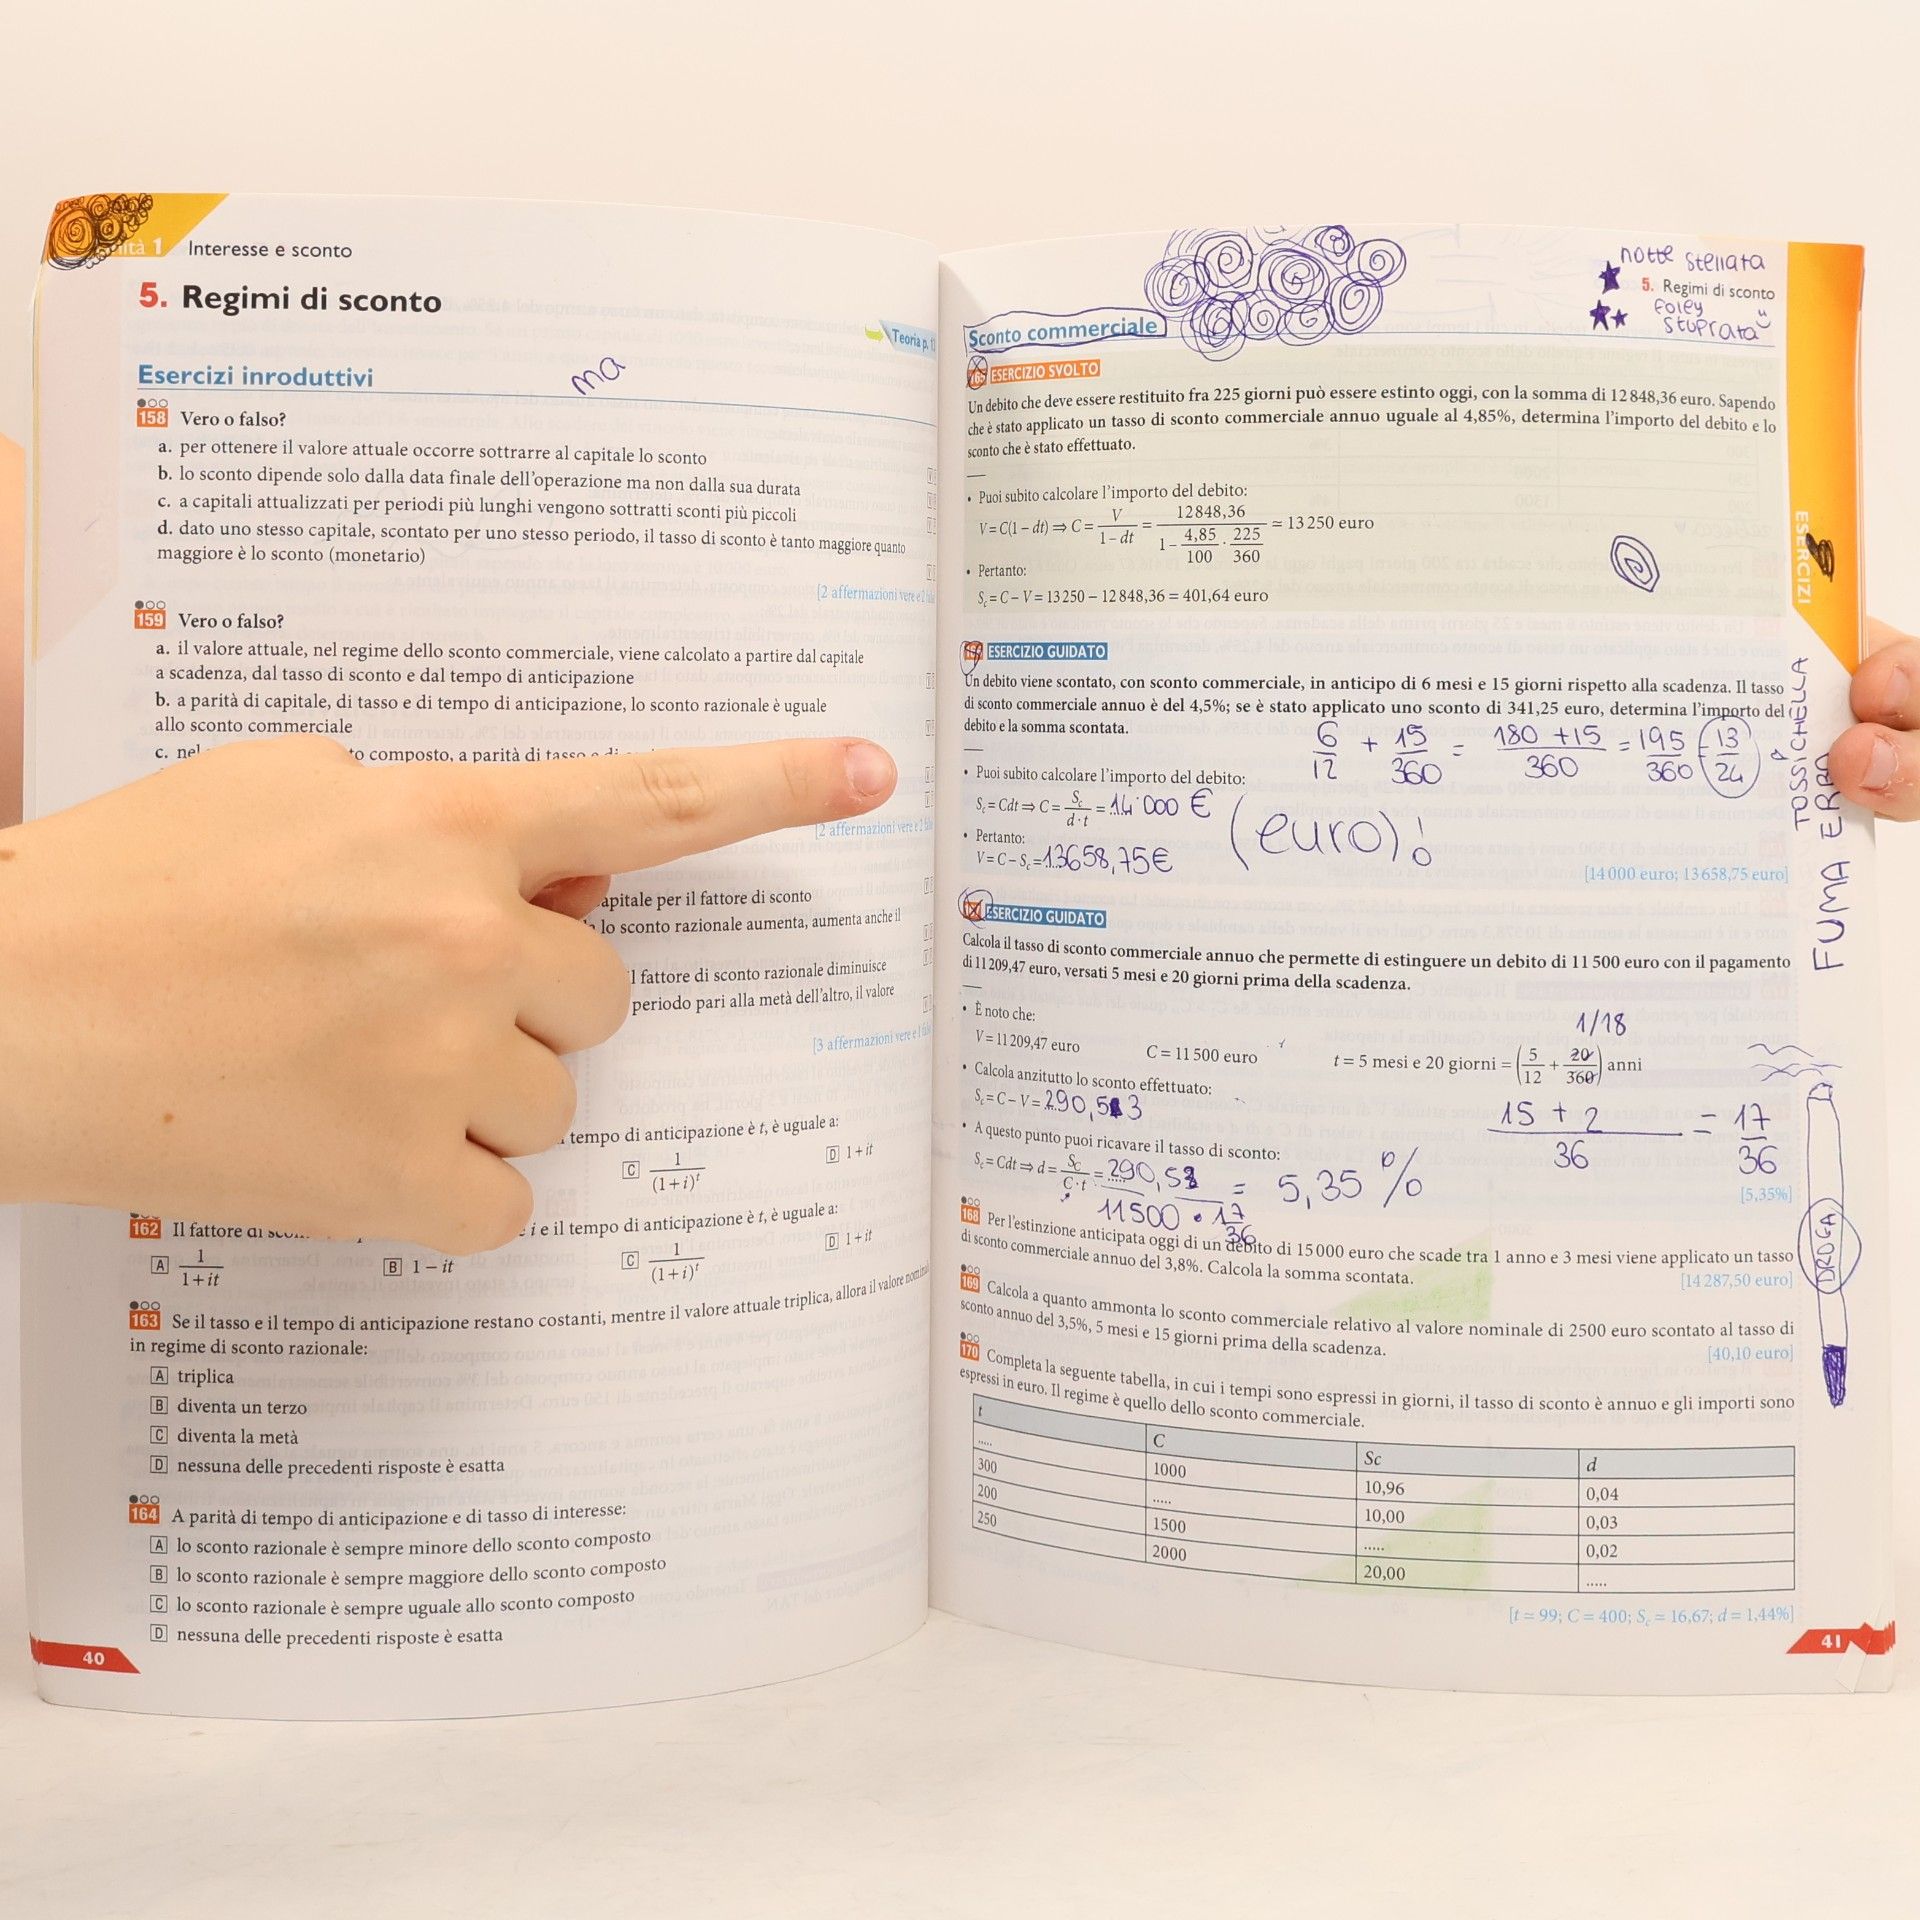 1 Interesse e sconto
5. Regimi di sconto
Teoria p.
Esercizi inroduttivi
ma
158 Vero o falso?
a. per ottenere il valore attuale occorre sottrarre al capitale lo sconto
b. lo sconto dipende solo dalla data finale dell'operazione ma non dalla sua durata
c. a capitali attualizzati per periodi più lunghi vengono sottratti sconti più piccoli
d. dato uno stesso capitale, scontato per uno stesso periodo, il tasso di sconto è tanto maggiore quanto
maggiore è lo sconto (monetario)
[2 affermazioni vere e 2
159 Vero o falso?
a. il valore attuale, nel regime dello sconto commerciale, viene calcolato a partire dal capitale
a scadenza, dal tasso di sconto e dal tempo di anticipazione
b. a parità di capitale, di tasso e di tempo di anticipazione, lo sconto razionale è uguale
allo sconto commerciale
c. composto, a parità di tasso
[2 affermazioni vere e 2
capitale per il fattore di sconto
lo sconto razionale aumenta, aumenta anche il
l fattore di sconto razionale diminuisce
periodo pari alla metà dell'altro, il valore
[3 affermazioni vere e 1
tempo di anticipazione è t, è uguale a:
C 1/(1+i)^t D 1+it
162 Il fattore di i e il tempo di anticipazione è t, è uguale a:
A 1/(1+it) B 1−it C 1/(1+i)^t D 1+it
163 Se il tasso e il tempo di anticipazione restano costanti, mentre il valore attuale triplica, allora il valore nominale
in regime di sconto razionale:
A triplica
B diventa un terzo
C diventa la metà
D nessuna delle precedenti risposte è esatta
164 A parità di tempo di anticipazione e di tasso di interesse:
A lo sconto razionale è sempre minore dello sconto composto
B lo sconto razionale è sempre maggiore dello sconto composto
C lo sconto razionale è sempre uguale allo sconto composto
D nessuna delle precedenti risposte è esatta
40
notte stellata
5. Regimi di sconto
foley
stuprata
Sconto commerciale
165 ESERCIZIO SVOLTO
Un debito che deve essere restituito fra 225 giorni può essere estinto oggi, con la somma di 12 848,36 euro. Sapendo
che è stato applicato un tasso di sconto commerciale annuo uguale al 4,85%, determina l'importo del debito e lo
sconto che è stato effettuato.
• Puoi subito calcolare l'importo del debito:
V = C(1 − dt) ⇒ C = V/(1 − dt) = 12 848,36/(1 − 4,85/100 · 225/360) = 13 250 euro
• Pertanto:
Sc = C − V = 13 250 − 12 848,36 = 401,64 euro
ESERCIZI
ESERCIZIO GUIDATO
Un debito viene scontato, con sconto commerciale, in anticipo di 6 mesi e 15 giorni rispetto alla scadenza. Il tasso
di sconto commerciale annuo è del 4,5%; se è stato applicato uno sconto di 341,25 euro, determina l'importo del
debito e la somma scontata.
6/12 + 15/360 = 180 + 15/360 = 195/360 = 13/24
• Puoi subito calcolare l'importo del debito:
Sc = Cdt ⇒ C = Sc/d·t = 14 000 €
(euro)!
• Pertanto:
V = C − Sc = 13658,75€
[14 000 euro; 13 658,75 euro]
TOSSICHELLA
FUMA ERBA
ESERCIZIO GUIDATO
Calcola il tasso di sconto commerciale annuo che permette di estinguere un debito di 11 500 euro con il pagamento
di 11 209,47 euro, versati 5 mesi e 20 giorni prima della scadenza.
• È noto che:
1/18
V = 11 209,47 euro C = 11 500 euro t = 5 mesi e 20 giorni = (5/12 + 20/360) anni
• Calcola anzitutto lo sconto effettuato:
Sc = C − V = 290,53
15 + 2/36 = 17/36
• A questo punto puoi ricavare il tasso di sconto:
Sc = Cdt ⇒ d = Sc/C·t = 290,53/11500 · 17/36 = 5,35 %
[5,35%]
DROGA
168 Per l'estinzione anticipata oggi di un debito di 15 000 euro che scade tra 1 anno e 3 mesi viene applicato un tasso
di sconto commerciale annuo del 3,8%. Calcola la somma scontata.
[14 287,50 euro]
169 Calcola a quanto ammonta lo sconto commerciale relativo al valore nominale di 2500 euro scontato al tasso di
sconto annuo del 3,5%, 5 mesi e 15 giorni prima della scadenza.
[40,10 euro]
170 Completa la seguente tabella, in cui i tempi sono espressi in giorni, il tasso di sconto è annuo e gli importi sono
espressi in euro. Il regime è quello dello sconto commerciale.
t C Sc d
..... 1000 10,96 0,04
300 ..... 10,00 0,03
200 1500 ..... 0,02
250 2000 20,00 .....
[t = 99; C = 400; Sc = 16,67; d = 1,44%]
41